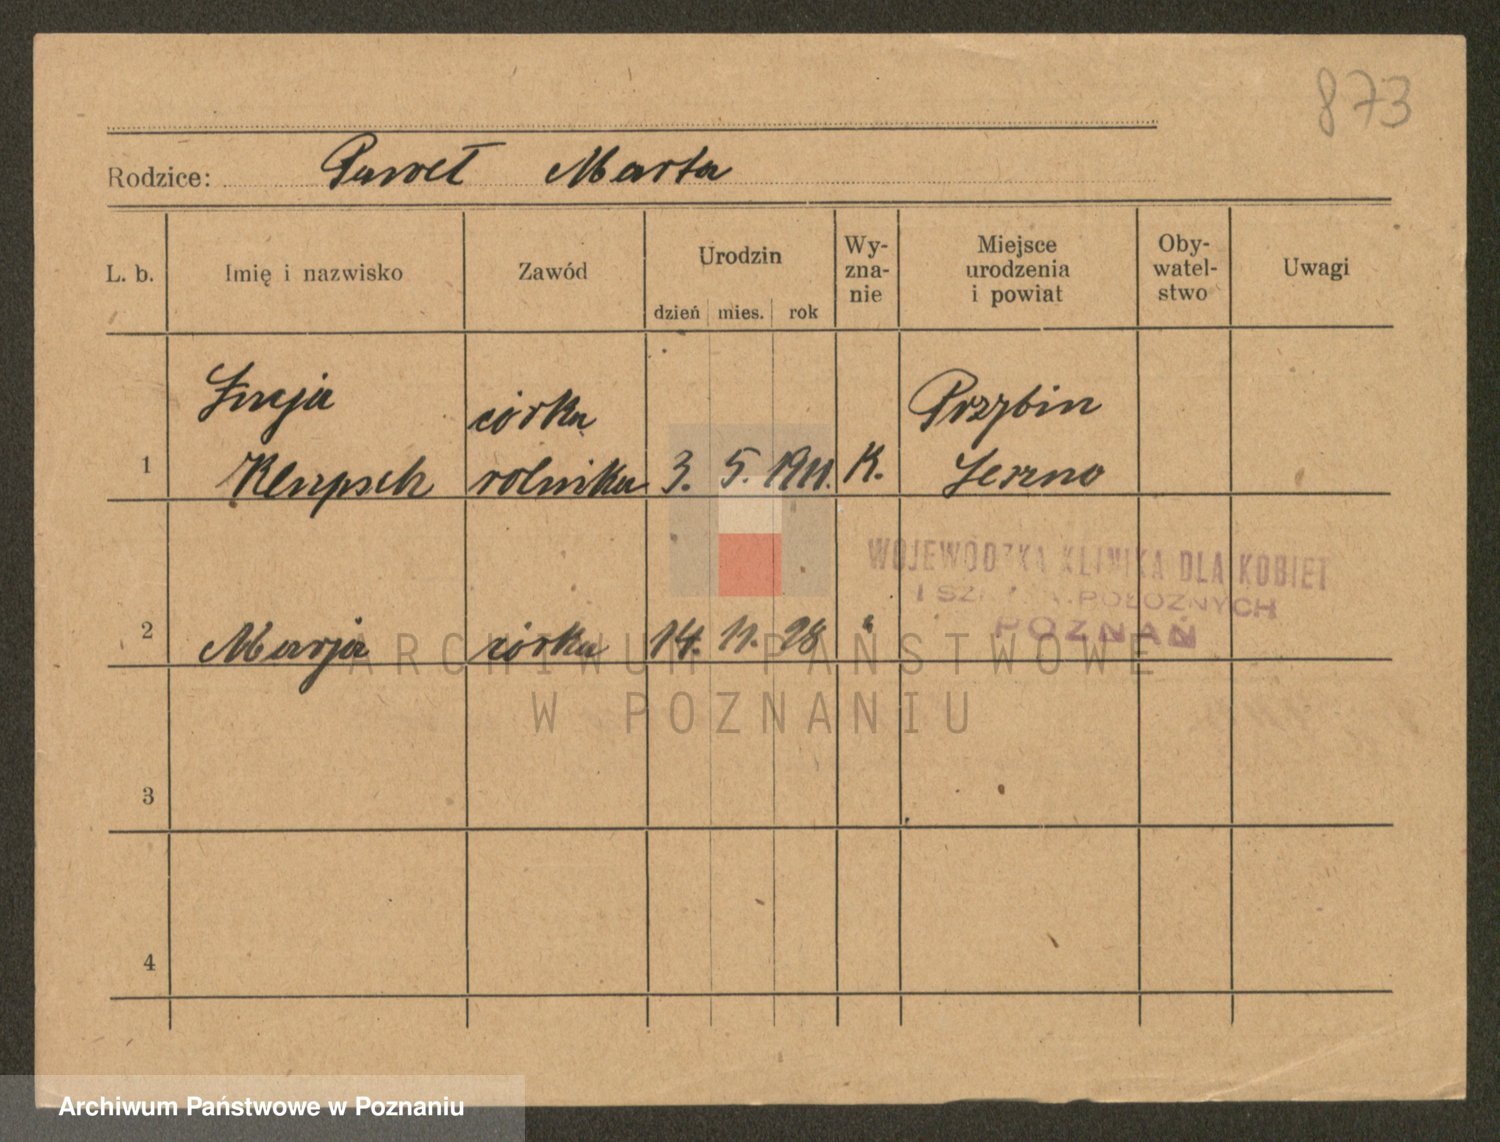 873
Rodzice: Paweł Marta
L. b. Imię i nazwisko Zawód Urodzin Wy-zna-nie Miejsce urodzenia i powiat Oby-watel-stwo Uwagi
dzień mies. rok
córka Przybin
1 rolnika 3. 5. 1911. K. Leszno
WOJEWÓDZKA KLINIKA DLA KOBIET
I POŁOŻNYCH
POZNAŃ
2 Marja córka 14. 11. 28 "
ARCHIWUM PAŃSTWOWE
W POZNANIU
3
4
Archiwum Państwowe w Poznaniu